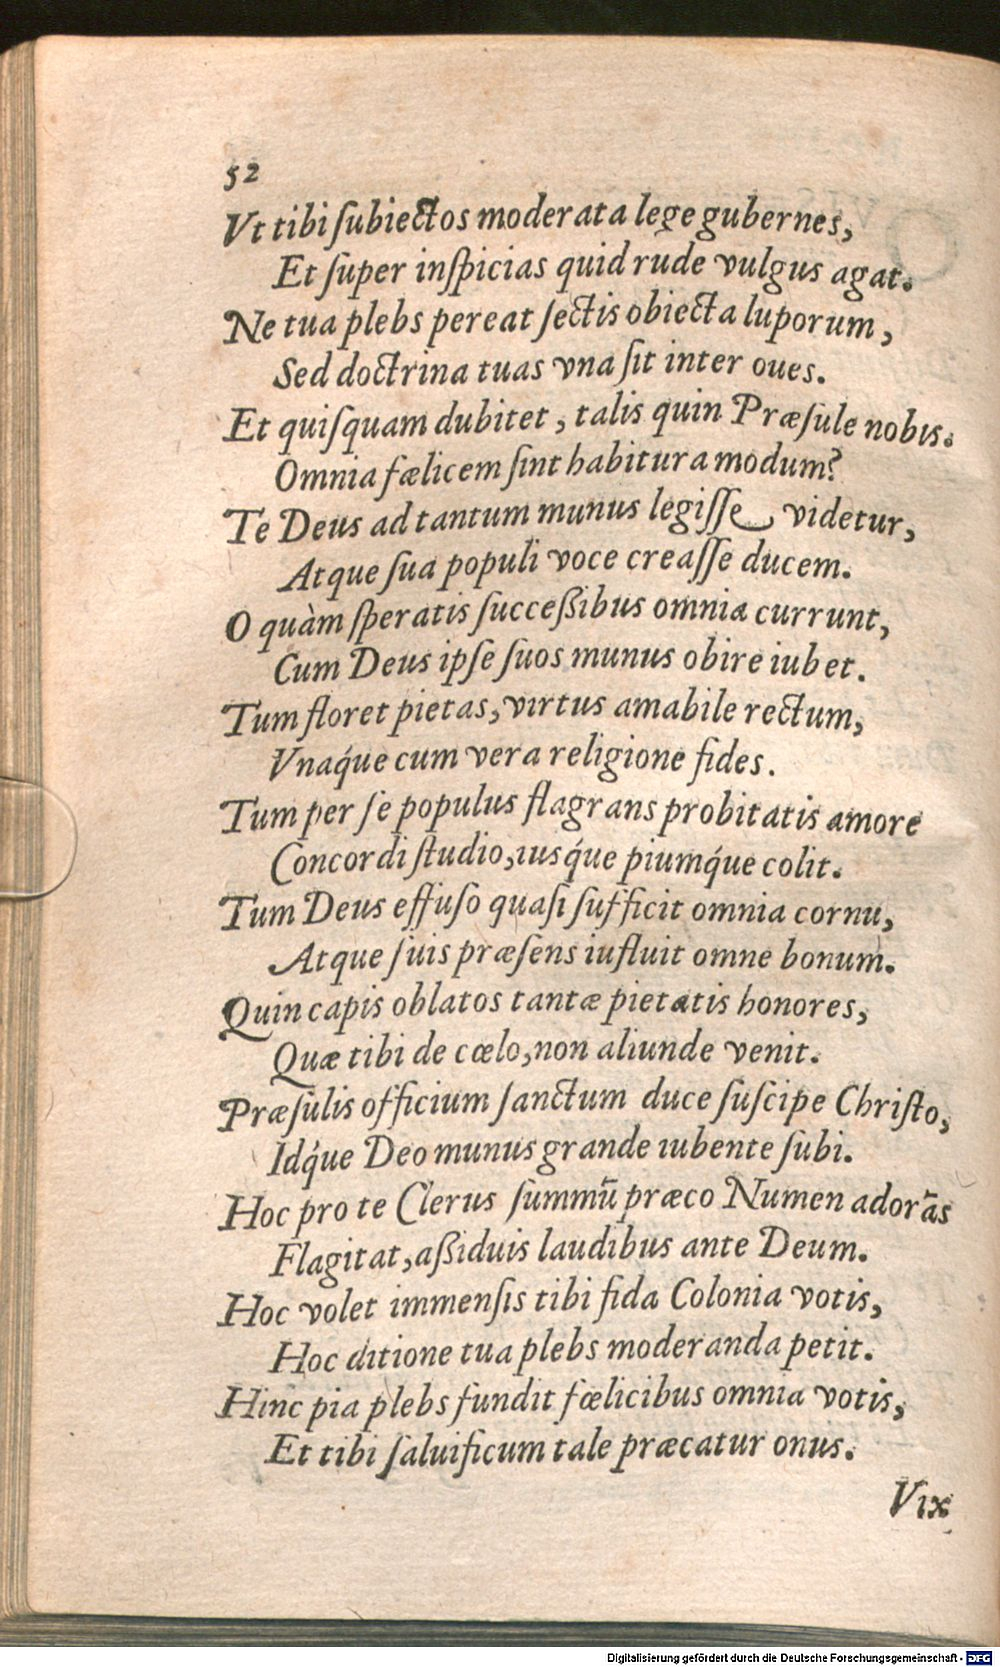 52
Vt tibi ſubiectos moderata lege gubernes,
Et ſuper inſpicias quid rude vulgus agat.
Ne tua plebs pereat ſectis obiecta luporum,
Sed doctrina tuas vna ſit inter oues.
Et quiſquam dubitet, talis quin Præſule nobis.
Omnia fælicem ſint habitura modum?
Te Deus ad tantum munus legiſſe videtur,
Atque ſua populi voce creaſſe ducem.
O quàm ſperatis ſucceßibus omnia currunt,
Cum Deus ipſe ſuos munus obire iubet.
Tum floret pietas, virtus amabile rectum,
Vnaq́ue cum vera religione fides.
Tum per ſe populus flagrans probitatis amore
Concordi ſtudio, iusq́ue piumq́ue colit.
Tum Deus effuſo quaſi ſufficit omnia cornu,
Atque ſuis præſens iufluit omne bonum.
Quin capis oblatos tantæ pietatis honores,
Quæ tibi de cœlo, non aliunde venit.
Præſulis officium ſanctum duce ſuſcipe Chriſto,
Idq́ue Deo munus grande iubente ſubi.
Hoc pro te Clerus ſummũ præco Numen adorãs
Flagitat, aßiduis laudibus ante Deum.
Hoc volet immenſis tibi fida Colonia votis,
Hoc ditione tua plebs moderanda petit.
Hinc pia plebs fundit fœlicibus omnia votis,
Et tibi ſaluificum tale præcatur onus.
Vix
Digitalisierung gefördert durch die Deutsche Forschungsgemeinschaft - DFG